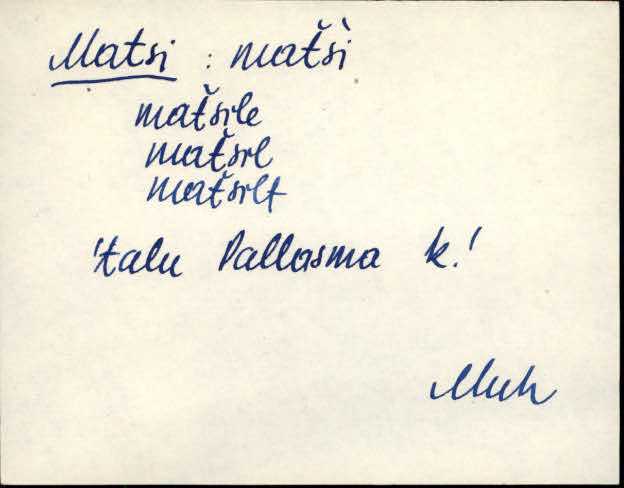 Matsi : mat̆s̀i
mat̆sile
mat̆sil
mat̆silt
'talu Pallasma k.'
Muh